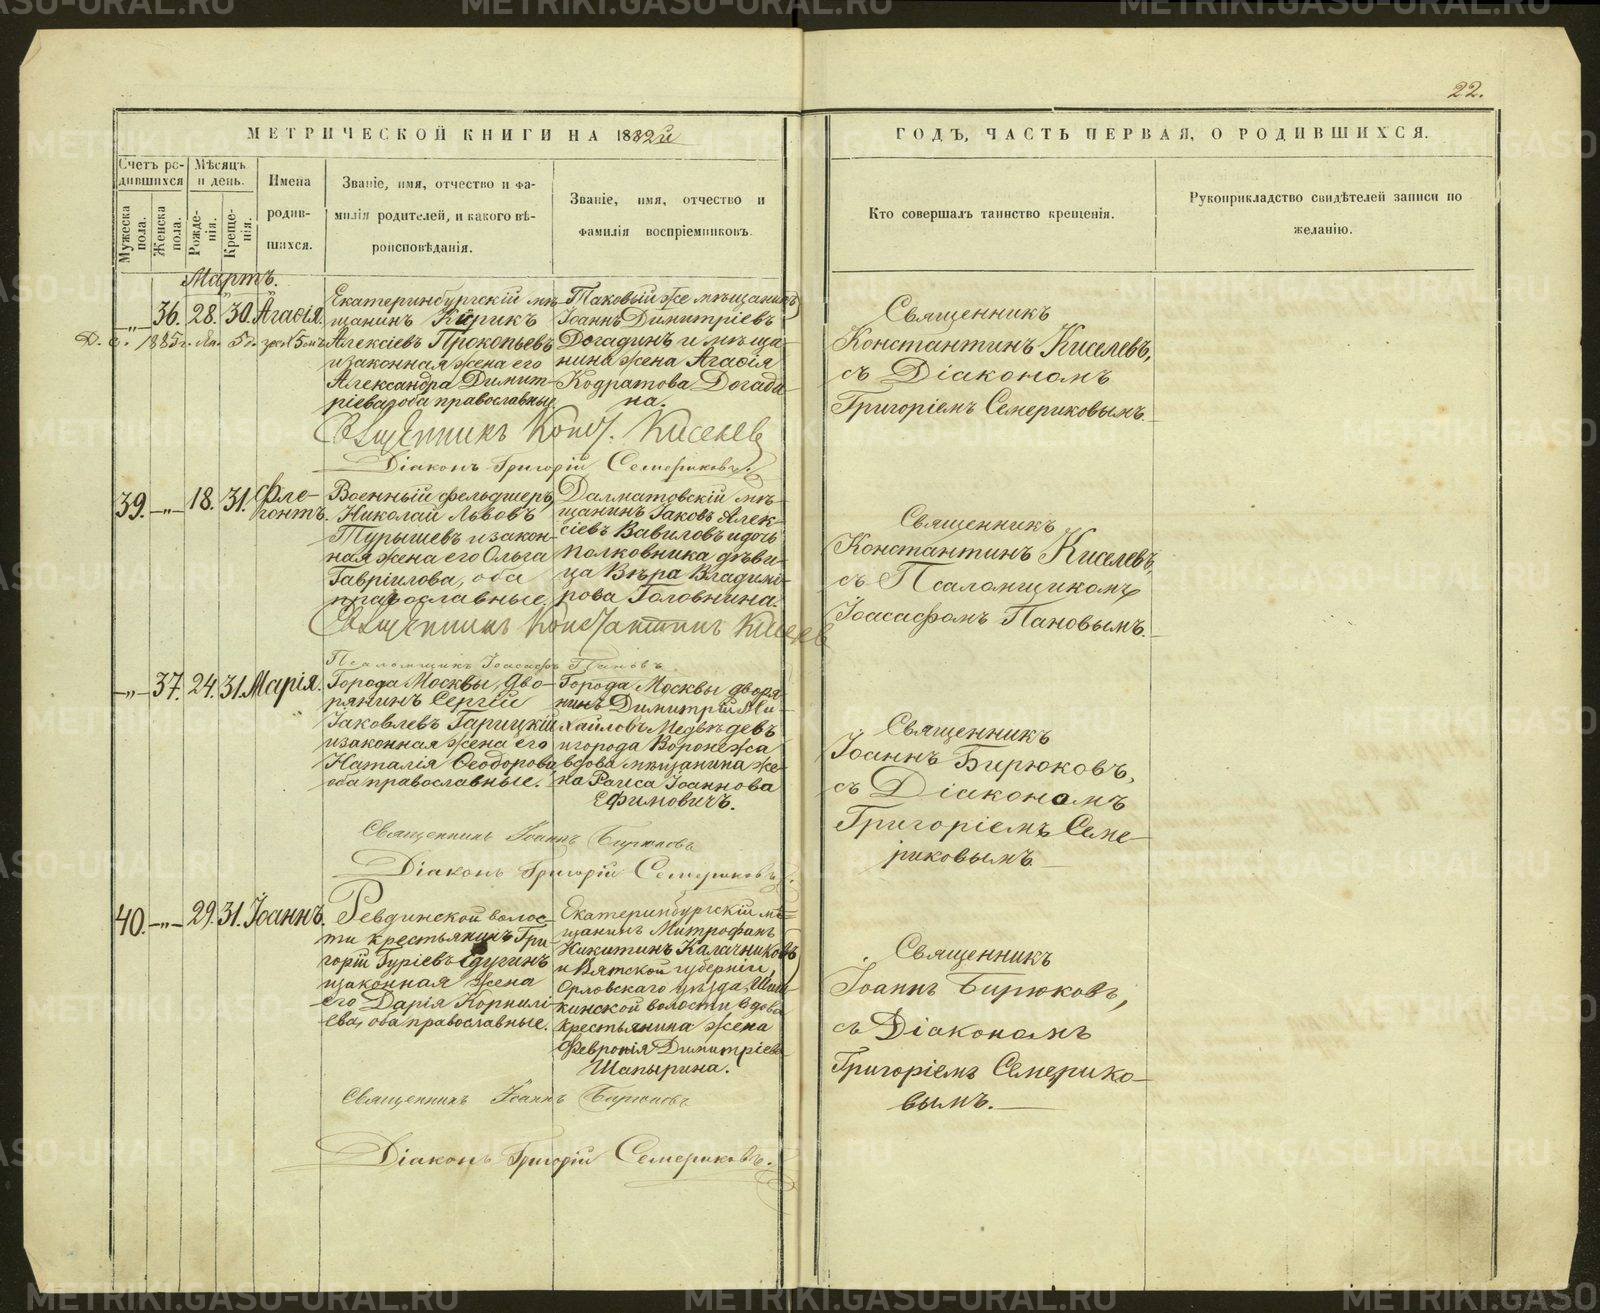 22.
МЕТРИЧЕСКОЙ КНИГИ НА 1882й
ГОДЪ, ЧАСТЬ ПЕРВАЯ, О РОДИВШИХСЯ.
Счетъ ро-
дившихся
Мужеска
пола.
Женска
пола.
Мѣсяцъ
и день.
Рожде-
нія.
Креще-
нія.
Имена
родив-
шихся.
Званіе, имя, отчество и фа-
милія родителей, и какого вѣ-
роисповѣданія.
Званіе, имя, отчество и
фамилія воспріемниковъ.
Кто совершалъ таинство крещенія.
Рукоприкладство свидѣтелей записи по
желанію.
Мартъ.
—„— 36. 28. 30. Агаѳія.
1885г.
Екатеринбургскій мѣ-
щанинъ Кирикъ
Алексіевъ Прокопьевъ
и законная жена его
Александра Димит-
ріева, оба православные.
Таковый же мѣщанинъ
Іоаннъ Димитріевъ
Догадинъ и мѣща-
нина жена Агаѳія
Кодратова Догади-
на.
Священникъ
Константинъ Киселевъ,
съ Діакономъ
Григоріемъ Семериковымъ.
Священникъ Конст. Киселевъ
Діаконъ Григорій Семериковъ.
39. —„— 18. 31. Фле-
гонтъ.
Военный фельдшеръ
Николай Львовъ
Турышевъ и закон-
ная жена его Ольга
Гавріилова, оба
православные.
Далматовскій мѣ-
щанинъ Іаковъ Алек-
сіевъ Вавиловъ и дочь
полковника дѣви-
ца Вѣра Владимі-
рова Головнина.
Священникъ
Константинъ Киселевъ,
съ Псаломщикомъ
Іоасафомъ Пановымъ.
Священникъ Константинъ Киселевъ
Псаломщикъ Іоасафъ Пановъ.
—„— 37. 24. 31. Марія.
Города Москвы, дво-
рянинъ Сергій
Іаковлевъ Гарицкій
и законная жена его
Наталія Ѳеодорова
оба православные.
Города Москвы дворя-
нинъ Димитрій Ми-
хайловъ Медвѣдевъ
и города Воронежа
вдова мѣщанина же-
на Раиса Іоаннова
Ефимовичъ.
Священникъ
Іоаннъ Бирюковъ,
съ Діакономъ
Григоріемъ Семе-
риковымъ
Священникъ Іоаннъ Бирюковъ
Діаконъ Григорій Семериковъ.
40. —„— 29. 31. Іоаннъ.
Ревдинской волос-
ти крестьянинъ Гри-
горій Гуріевъ
и законная жена
его Дарія Корнилі-
ева, оба православные.
Екатеринбургскій мѣ-
щанинъ Митрофанъ
Никитинъ Калачниковъ
и Вятской губерніи,
Орловскаго уѣзда,
кинской волости вдова
крестьянина жена
Февронія Димитріева
Шапырина.
Священникъ
Іоаннъ Бирюковъ,
съ Діакономъ
Григоріемъ Семерико-
вымъ.
Священникъ Іоаннъ Бирюковъ
Діаконъ Григорій Семериковъ.
METRIKI.GASO-URAL.RU